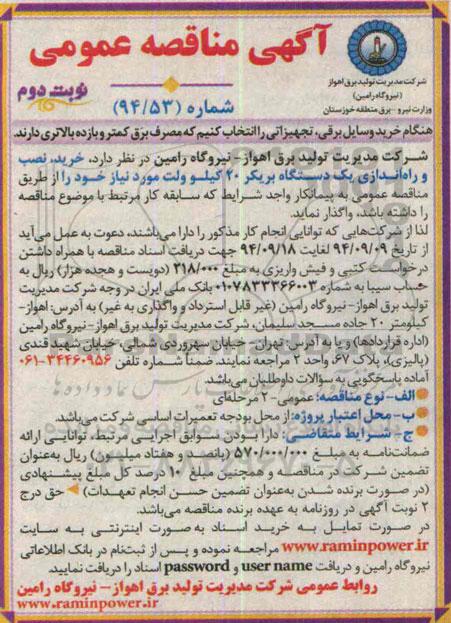 آگهی مناقصه عمومی
شرکت مدیریت تولید برق اهواز
(نیروگاه رامین)
وزارت نیرو - برق منطقه خوزستان
نوبت دوم
شماره (۹۴/۵۳)
هنگام خرید وسایل برقی، تجهیزاتی را انتخاب کنیم که مصرف برق کمتر و بازده بالاتری دارند.
شرکت مدیریت تولید برق اهواز- نیروگاه رامین در نظر دارد، خرید، نصب
و راه‌اندازی یک دستگاه بریکر ۲۰ کیلو ولت مورد نیاز خود را از طریق
مناقصه عمومی به پیمانکار واجد شرایط که سابقه کار مرتبط با موضوع مناقصه
را داشته باشد، واگذار نماید.
لذا از شرکت‌هایی که توانایی انجام کار مذکور را دارا می‌باشند، دعوت به عمل می‌آید
از تاریخ ۹۴/۰۹/۰۹ لغایت ۹۴/۰۹/۱۸ جهت دریافت اسناد مناقصه با همراه داشتن
درخواست کتبی و فیش واریزی به مبلغ ۲۱۸/۰۰۰ (دویست و هجده هزار) ریال به
حساب سیبا به شماره ۰۱۰۷۸۳۳۳۶۶۰۰۳ بانک ملی ایران در وجه شرکت مدیریت
تولید برق اهواز- نیروگاه رامین (غیر قابل استرداد و واگذاری به غیر) به آدرس: اهواز-
کیلومتر ۲۰ جاده مسجد سلیمان، شرکت مدیریت تولید برق اهواز- نیروگاه رامین
(اداره قراردادها) و یا به آدرس: تهران- خیابان سهروردی شمالی، خیابان شهید قندی
(پالیزی)، پلاک ۶۷، واحد ۲ مراجعه نمایند. ضمناً شماره تلفن ۳۴۴۶۰۹۵۶-۰۶۱
آماده پاسخگویی به سؤالات داوطلبان می‌باشد.
الف- نوع مناقصه: عمومی- ۲ مرحله‌ای
ب- محل اعتبار پروژه: از محل بودجه تعمیرات اساسی شرکت می‌باشد.
ج- شرایط متقاضی: دارا بودن سوابق اجرایی مرتبط، توانایی ارائه
ضمانت‌نامه به مبلغ ۵۷۰/۰۰۰/۰۰۰ (پانصد و هفتاد میلیون) ریال به‌عنوان
تضمین شرکت در مناقصه و همچنین مبلغ ۱۰ درصد کل مبلغ پیشنهادی
(در صورت برنده شدن به‌عنوان تضمین حسن انجام تعهدات) حق درج
۲ نوبت آگهی در روزنامه به عهده برنده مناقصه می‌باشد.
در صورت تمایل به خرید اسناد به صورت اینترنتی به سایت
www.raminpower.ir مراجعه نموده و پس از ثبت‌نام در بانک اطلاعاتی
نیروگاه رامین و دریافت user name و password اسناد را دریافت نمایید.
روابط عمومی شرکت مدیریت تولید برق اهواز - نیروگاه رامین
www.raminpower.ir